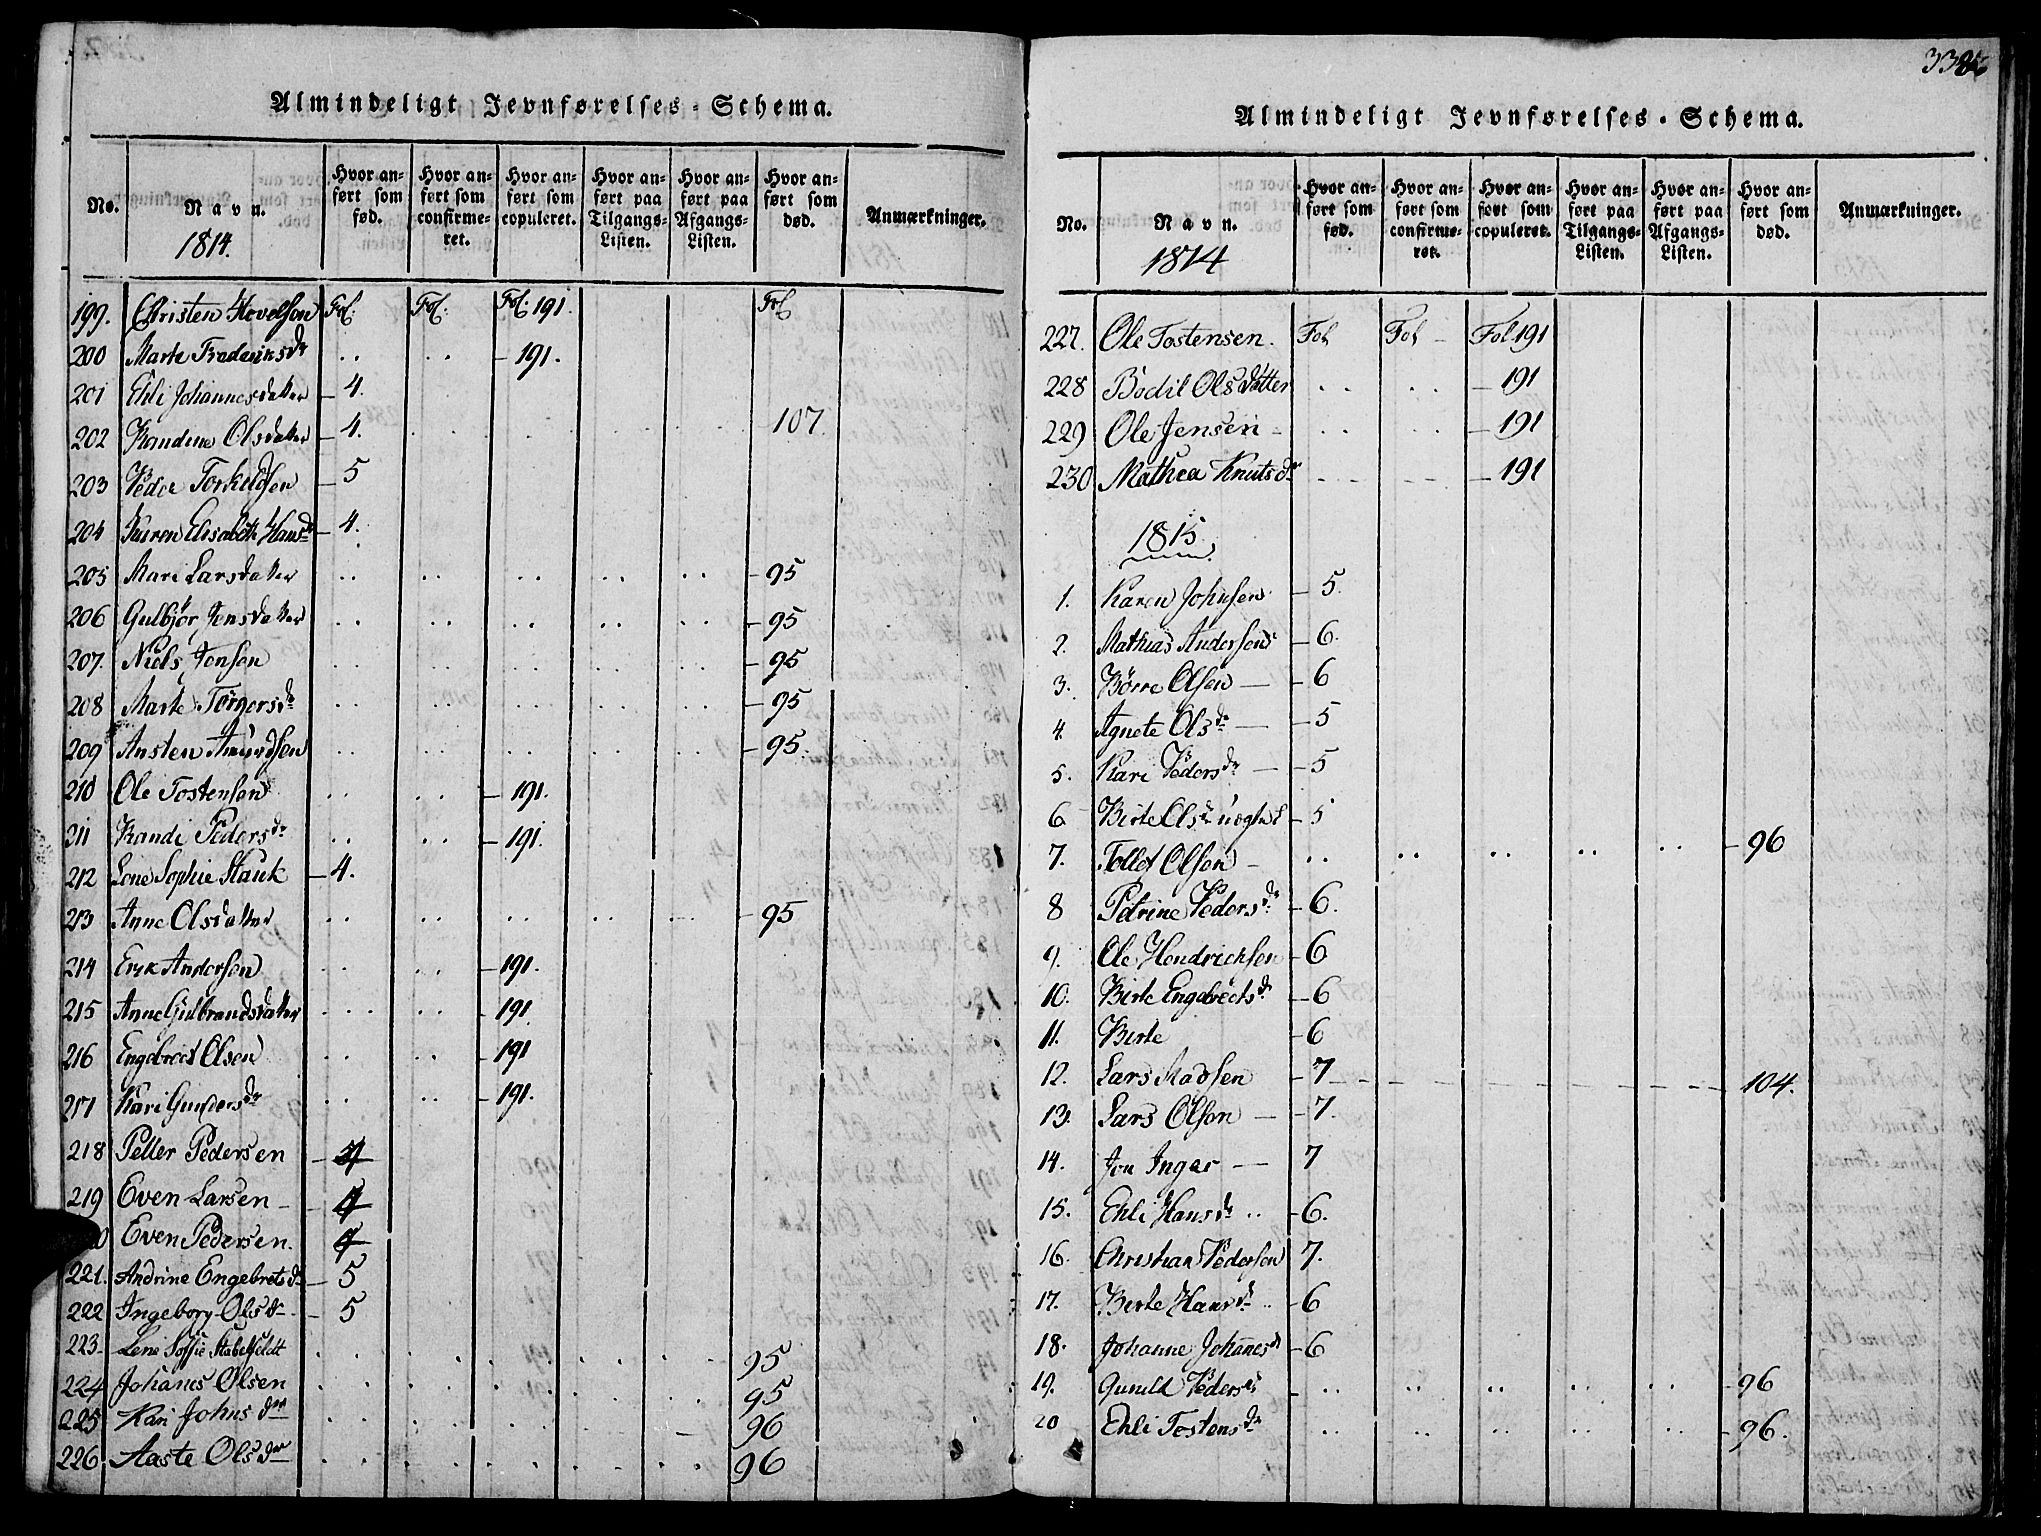 Almindeligt Jevnførelses-Schema.
No. Navn. 1814. Hvor anført som fød. Hvor anført som confirmeret. Hvor anført som copuleret. Hvor anført paa Tilgangs-Listen. Hvor anført paa Afgangs-Listen. Hvor anført som død. Anmærkninger.
199. Christen Hovelsen Fol: Fol: Fol: 191. Fol
200 Marte Frederiksdr .. .. - 191.
201 Ehli Johannesdatter - 4.
202 Randine Olsdatter - 4. 107
203 Peder Torkelsen - 5
204 Karen Elisabeth Hansdr - 4.
205 Mari Larsdatter .. .. .. .. .. - 95
206 Gulbjør Jensdatter .. .. .. .. .. - 95
207. Niels Jonsen .. .. .. .. .. - 95
208 Marte Torgersdr .. .. .. .. .. - 95
209 Ansten Amundsen .. .. .. .. .. - 95.
210 Ole Tostensen .. .. - 191.
211 Randi Pedersdr .. .. - 191.
212 Lene Sophie Hauk - 4.
213 Anne Olsdatter .. .. .. .. .. - 95
214 Erik Andersen .. .. - 191.
215 Anne Gulbrandsdatter .. .. - 191.
216 Engebret Olsen .. .. - 191
217 Kari Gundersdr .. .. - 191.
218 Peller Pedersen - 4
219 Even Larsen - - 4
Even Pedersen. 4
221. Andrine Engebretsdr - 5
222 Ingeborg Olsdr - 5
223 Lene Soffie Stabelfeldt . . . . . 95
224 Johanes Olsen . . . . . 95
225 Kari Johnsdtr . . . . . 96
226. Aaste Olsdtr . . . . . 96
338
Almindeligt Jevnførelses-Schema.
No. Navn. 1814 Hvor anført som fød. Hvor anført som confirmeret. Hvor anført som copuleret. Hvor anført paa Tilgangs-Listen. Hvor anført paa Afgangs-Listen. Hvor anført som død. Anmærkninger.
227. Ole Tostensen. Fol Fol - Fol 191
228 Bodil Olsdatter .. .. - 191
229 Ole Jensen - .. .. - 191
230 Mathea Knutsdr - 191
1815.
1. Karen Johnsen - 5.
2. Mathias Andersen - 6.
3. Børre Olsen - 6
4. Agnete Olsdr - 5
5. Kari Pedersdr - 5
6 Birte Olsdr uægte - 5
7. Tollef Olsen - .. .. .. .. .. - 96
8 Petrine Pedersdr - 6.
9. Ole Hendrichsen - 6
10. Birte Engebretsdr - 6
11. Birte - 6
12. Lars Madsen - 7 - - - - - 104.
13. Lars Olsen - 7.
14. Jon Inger - 7
15. Ehli Hansdr .. - 6.
16. Christian Pedersen 7.
17. Birte Hansdr .. - 6
18. Johanne Johanesdr - 6
19. Gunild Pedersdr - .. .. .. .. .. - 96
20 Ehli Tostensdr .. .. .. .. .. - 96.